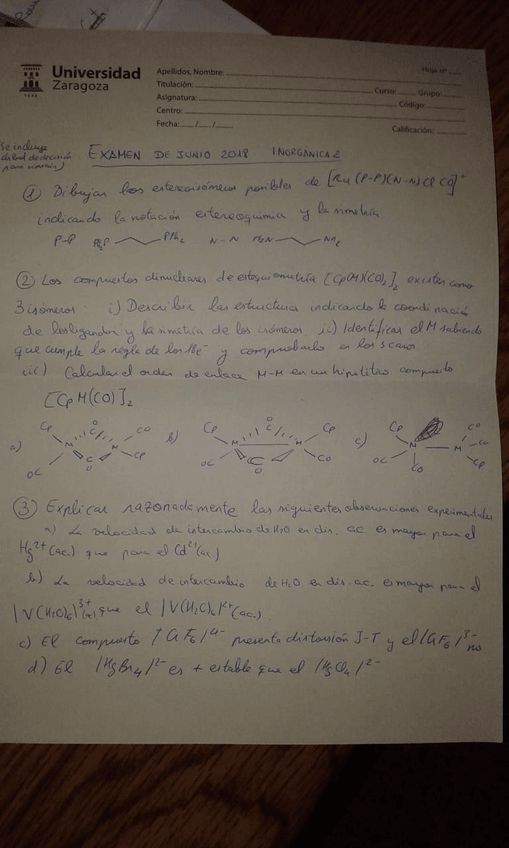 Universidad
Zaragoza
1542
Apellidos, Nombre:
Hoja nº
Titulación:
Curso: Grupo:
Asignatura:
Código:
Centro:
Fecha: / /
Calificación:
Se incluye
para
EXAMEN DE JUNIO 2018 INORGANICA 2
① Dibujar los estereoisómeros posibles de [Ru(P-P)(N-N)Cl CO]+
indicando la notación estereoquímica y la simetría
P-P Ph2P PPh2 N-N H2N NH2
② Los compuestos dinucleares de estequiometría [CpM(CO)2]2 existen como
3 isómeros: i) Describir las estructura indicando la coordinación
de los ligandos y la simetría de los isómeros ii) Identificar el M sabiendo
que cumple la regla de los 18e- y comprobarlo en los 3 casos
iii) Calcular el orden de enlace M-M en un hipotético compuesto
[CpM(CO)]2
a) Cp O C CO M M OC C O Cp
b) Cp O C Cp M M OC C O CO
c) Cp CO M M CO OC CO Cp
③ Explicar razonadamente las siguientes observaciones experimentales
a) La velocidad de intercambio de H2O en dis. ac. es mayor para el
Hg2+(ac.) que para el Cd2+(ac)
b) La velocidad de intercambio de H2O en dis. ac. es mayor para el
|V(H2O)6|3+(ac) que el |V(H2O)6|2+(ac.)
c) El compuesto |CrF6|4- presenta distorsión J-T y el |CrF6|3- no
d) El |HgBr4|2- es + estable que el |HgCl4|2-